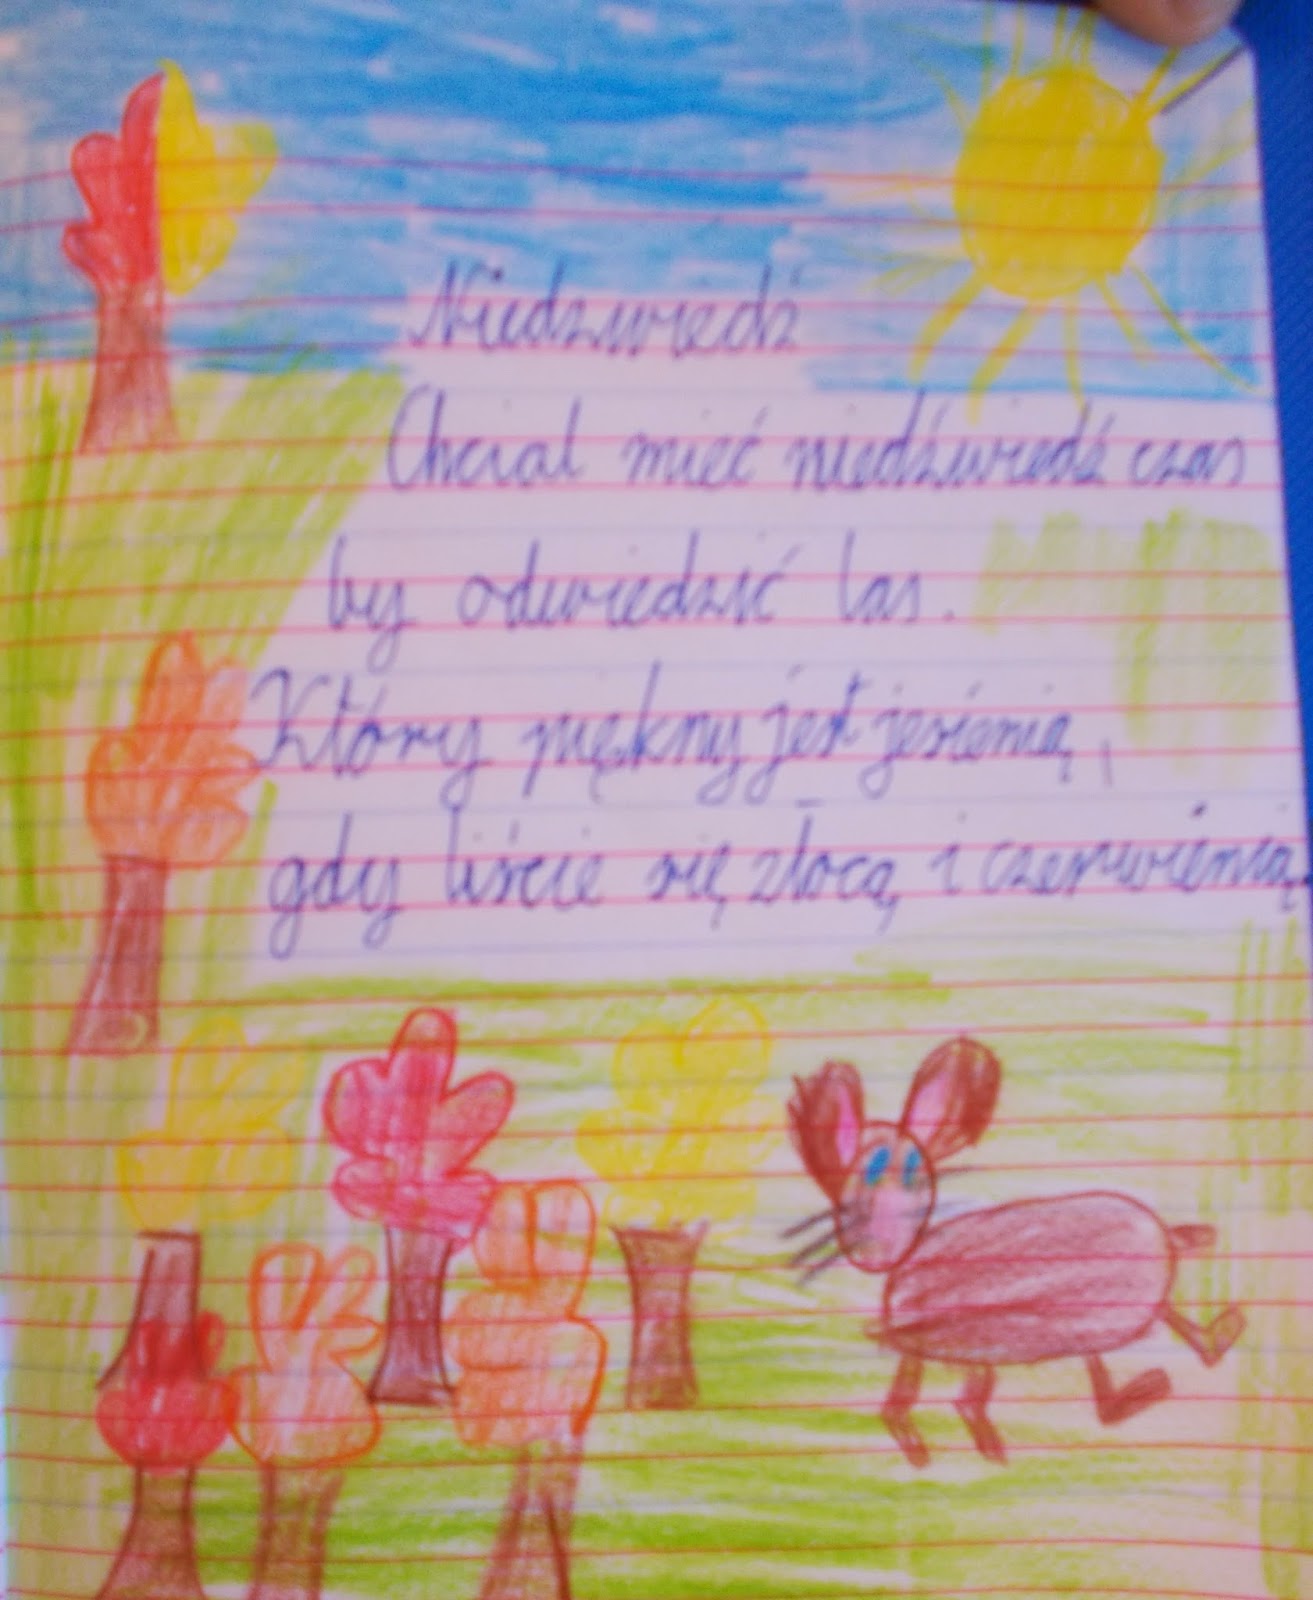 Niedzwiedź
Chciał mieć niedźwiedź czas
by odwiedzić las.
Który piękny jest jesienią,
gdy liście się złocą i czerwienią.